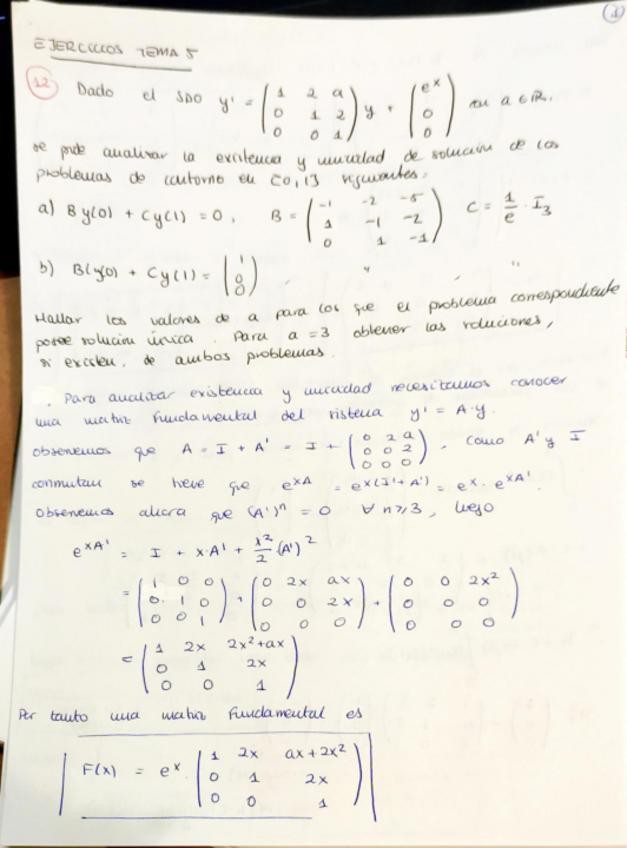 (1)
EJERCICIOS TEMA 5
12 Dado el SDO y' = (1 2 a; 0 1 2; 0 0 1) y + (e^x; 0; 0) con a ∈ ℝ.
se pide analizar la existencia y unicidad de solución de los
problemas de contorno en [0,1] siguientes:
a) By(0) + Cy(1) = 0, B = (-1 -2 -5; 1 -1 -2; 0 1 -1) C = 1/e · I₃
b) B(y(0) + Cy(1) = (1; 0; 0) " "
Hallar los valores de a para los que el problema correspondiente
posee solución única. Para a = 3 obtener las soluciones,
si existen, de ambos problemas.
. Para analizar existencia y unicidad necesitamos conocer
una matriz fundamental del sistema y' = A·y.
observemos que A = I + A' = I + (0 2 a; 0 0 2; 0 0 0), como A' y I
conmutan se tiene que e^{xA} = e^{x(I+A')} = e^x · e^{xA'}.
Observemos ahora que (A')^n = 0 ∀ n ≥ 3, luego
e^{xA'} = I + x·A' + x²/2 (A')²
= (1 0 0; 0 1 0; 0 0 1) + (0 2x ax; 0 0 2x; 0 0 0) + (0 0 2x²; 0 0 0; 0 0 0)
= (1 2x 2x²+ax; 0 1 2x; 0 0 1)
Por tanto una matriz fundamental es
F(x) = e^x · (1 2x ax+2x²; 0 1 2x; 0 0 1)